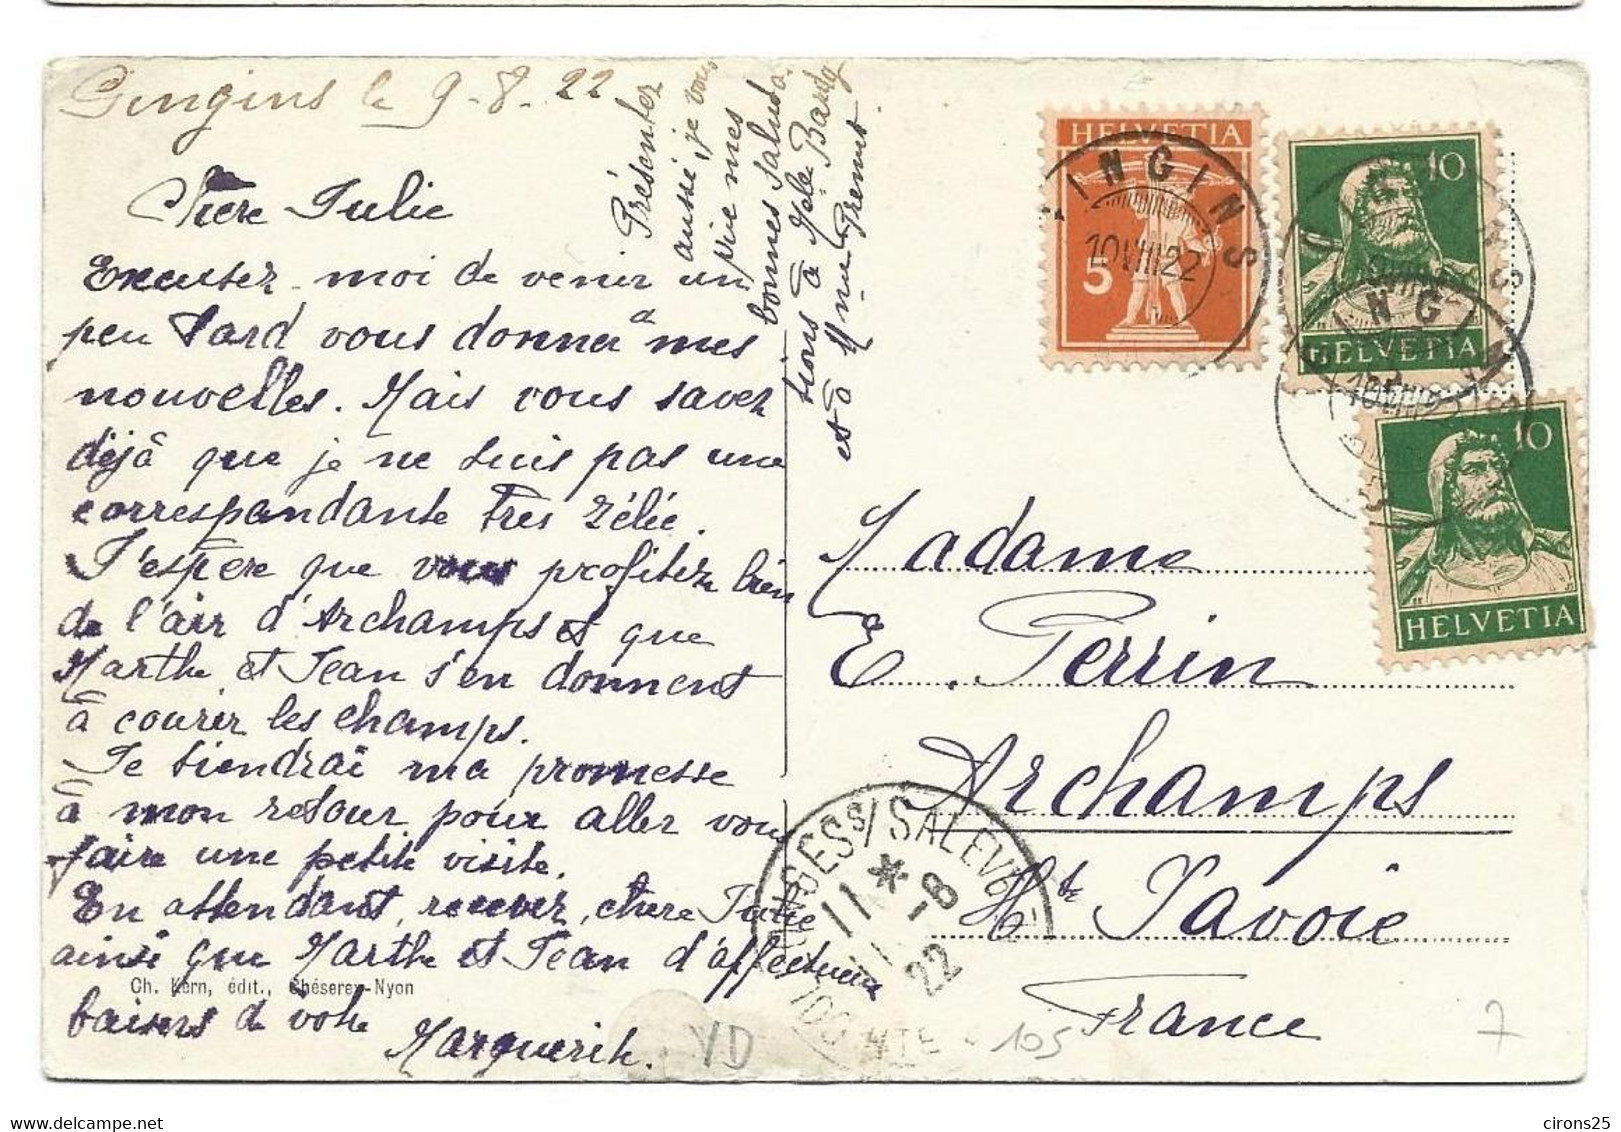 Gingins le 9-8.22
Chère Julie
Excusez-moi de venir un
peu tard vous donner mes
nouvelles. Mais vous savez
déjà que je ne suis pas une
correspondante très zélée.
J'espère que vous profitez bien
de l'air d'Archamps et que
Marthe et Jean s'en donnent
à courir les champs.
Je tiendrai ma promesse
à mon retour pour aller vous
faire une petite visite.
En attendant, recevez, chère Julie
ainsi que Marthe et Jean d'affectueux
baisers de votre
Marguerite.
Présentez
aussi, je vous
prie mes
bonnes saluta-
tions à Melle
et à Mme
Ch. Kern, édit., Chéserex-Nyon
HELVETIA
5
GINGINS
10 VIII 22
10
HELVETIA
GINGINS
10
HELVETIA
Madame
E. Perrin
Archamps
Hte Savoie
France
COLLONGES S/SALEVE
11 * 11-8
22
HTE
VD
105
7
delcampe.net
cirons25